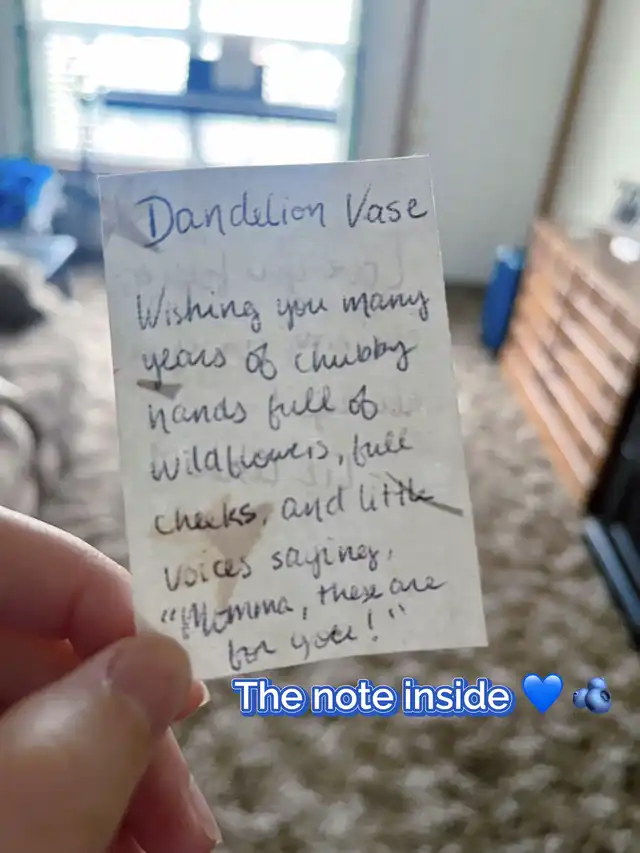 Dandelion Vase
Wishing you many
years of chubby
hands full of
wildflowers, full
cheeks, and little
voices saying,
"Momma, these are
for you!"
The note inside 💙 🫐